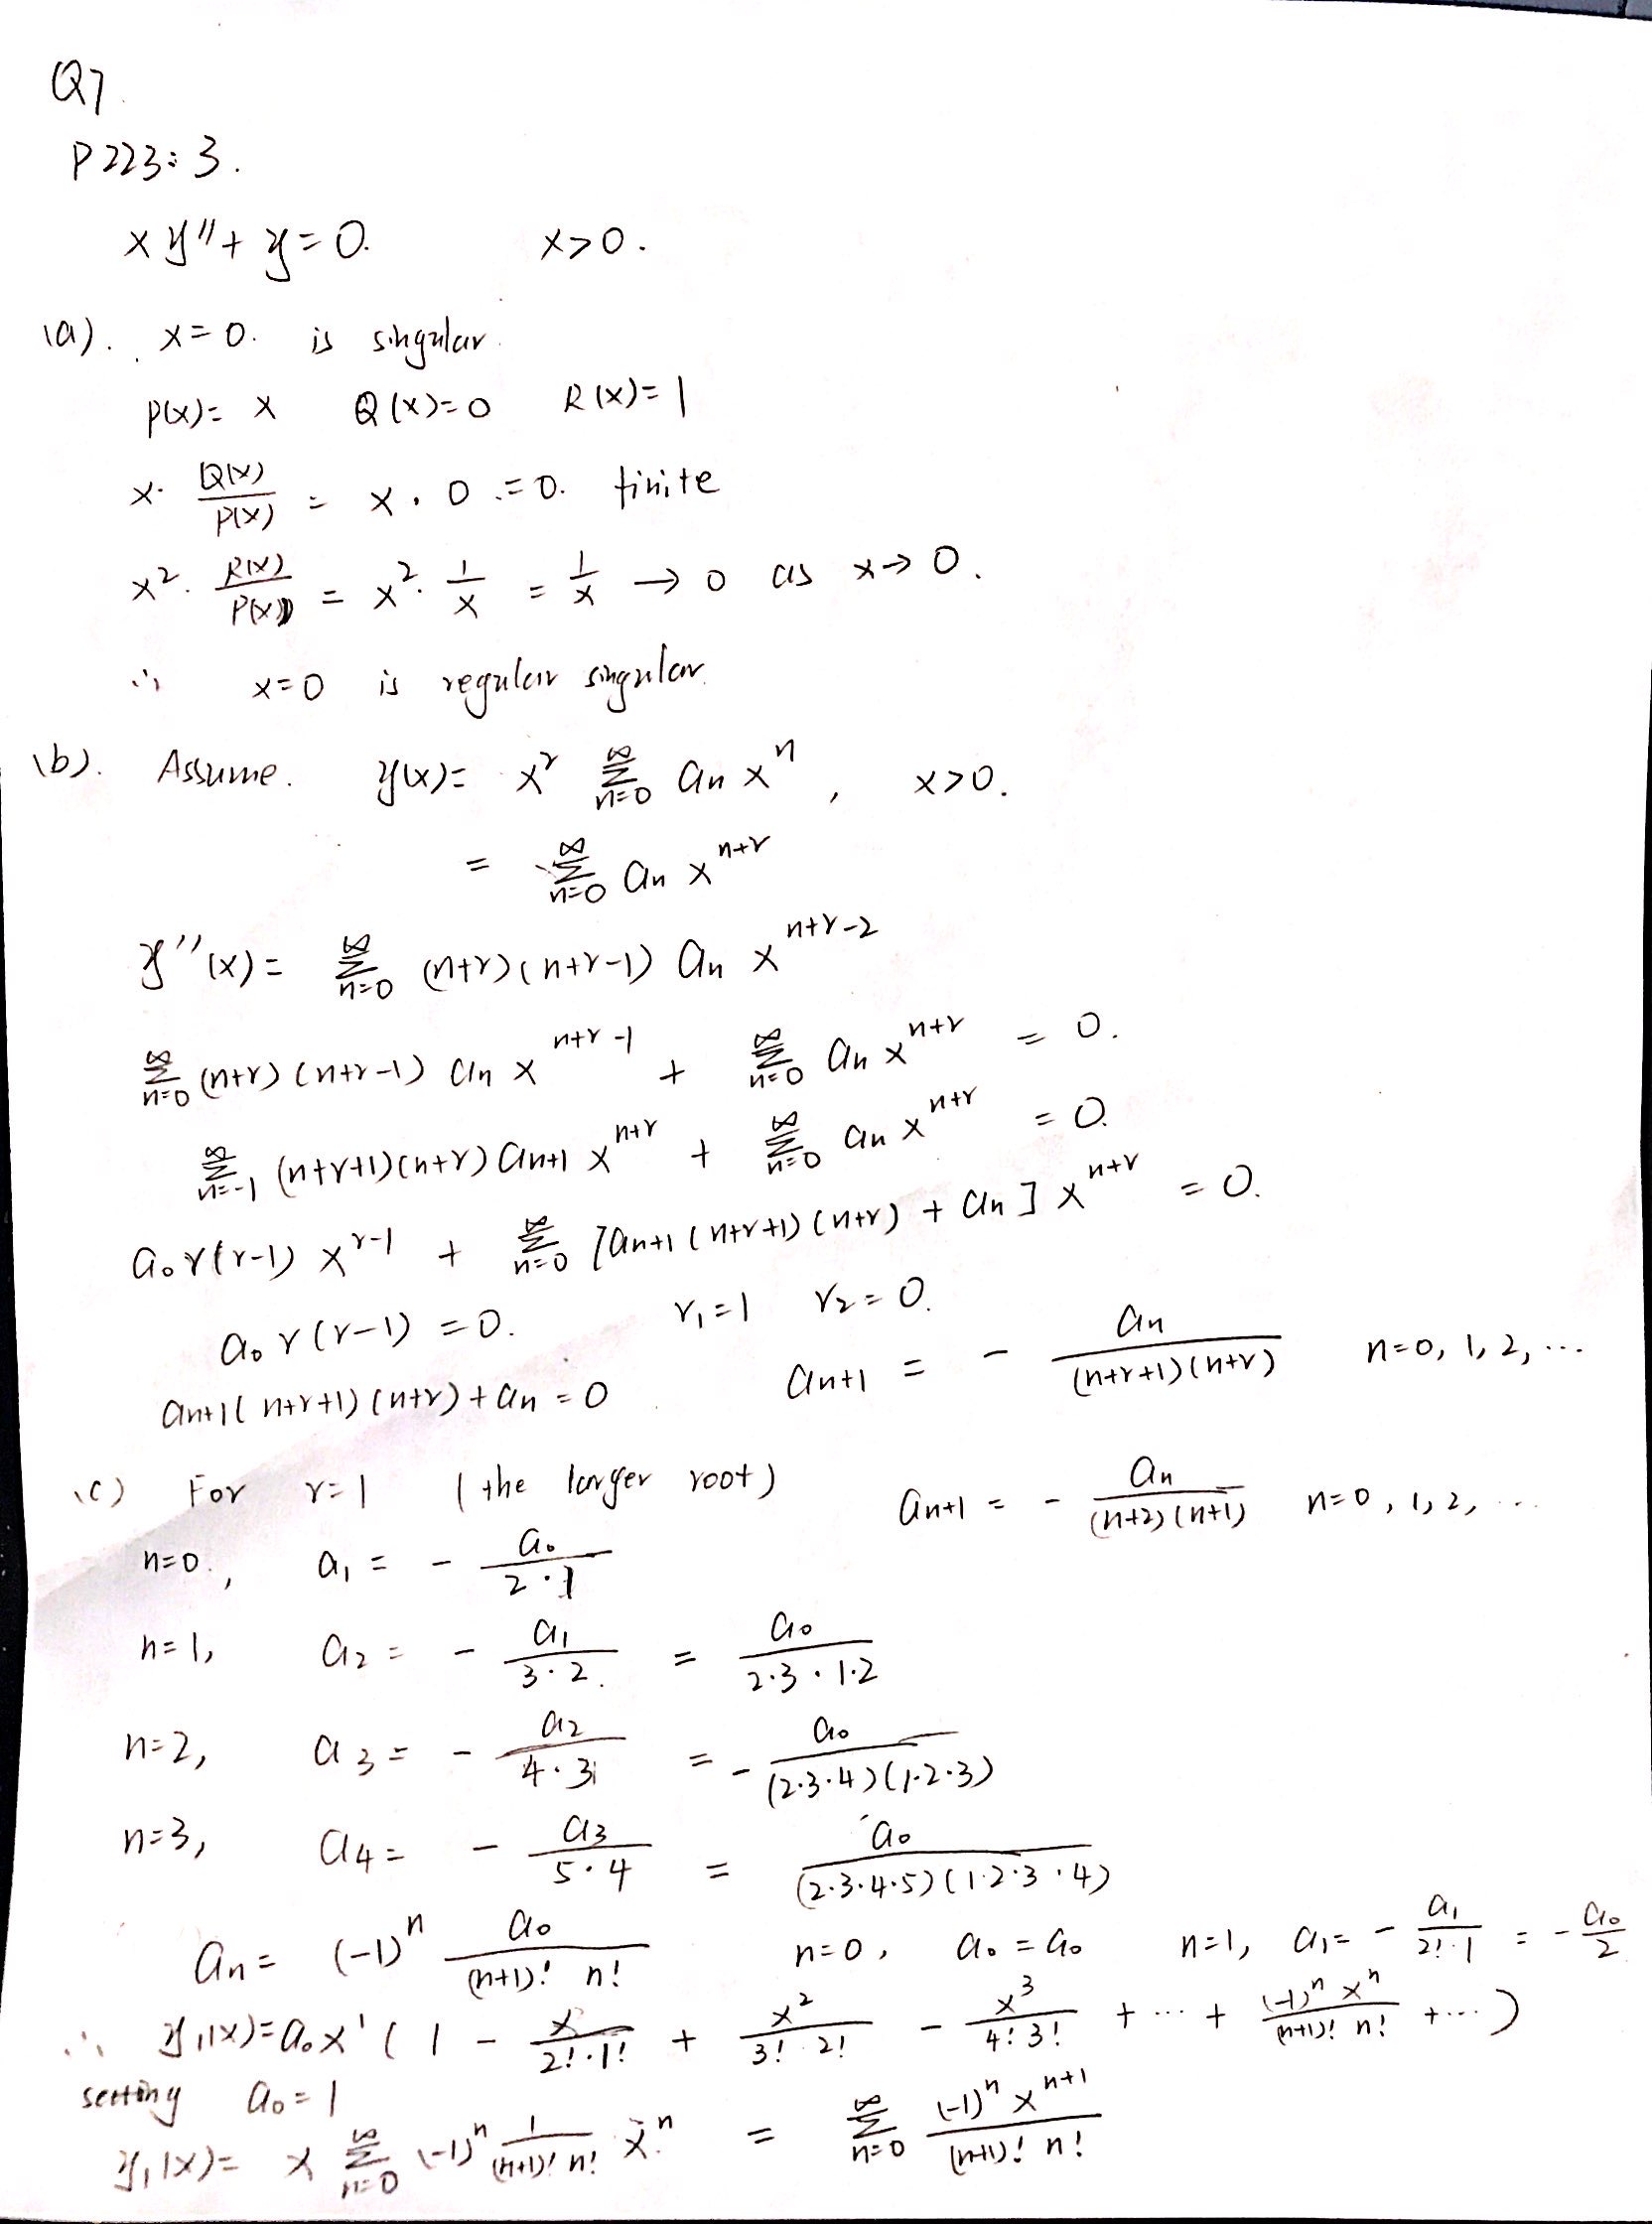 Q7
P223: 3.
xy'' + y = 0. x>0.
(a). x=0. is singular.
P(x)= x Q(x)=0 R(x)=1
x· Q(x)/P(x) = x · 0 = 0. finite
x²· R(x)/P(x) = x²· 1/x = 1/x → 0 as x→0.
∴ x=0 is regular singular.
(b). Assume. y(x)= x^r ∑_{n=0}^∞ a_n x^n , x>0.
= ∑_{n=0}^∞ a_n x^{n+r}
y''(x)= ∑_{n=0}^∞ (n+r)(n+r-1) a_n x^{n+r-2}
∑_{n=0}^∞ (n+r)(n+r-1) a_n x^{n+r-1} + ∑_{n=0}^∞ a_n x^{n+r} = 0.
∑_{n=-1}^∞ (n+r+1)(n+r) a_{n+1} x^{n+r} + ∑_{n=0}^∞ a_n x^{n+r} = 0.
a_0 r(r-1) x^{r-1} + ∑_{n=0}^∞ [a_{n+1}(n+r+1)(n+r) + a_n] x^{n+r} = 0.
a_0 r(r-1) = 0. r_1=1 r_2=0.
a_{n+1}(n+r+1)(n+r) + a_n = 0 a_{n+1} = - a_n/((n+r+1)(n+r)) n=0, 1, 2, ...
(c) For r=1 (the larger root) a_{n+1} = - a_n/((n+2)(n+1)) n=0, 1, 2, ...
n=0., a_1 = - a_0/(2·1)
n=1, a_2 = - a_1/(3·2.) = a_0/(2·3·1·2)
n=2, a_3 = - a_2/(4·3) = - a_0/((2·3·4)(1·2·3))
n=3, a_4 = - a_3/(5·4) = a_0/((2·3·4·5)(1·2·3·4))
a_n = (-1)^n a_0/((n+1)! n!) n=0, a_0=a_0 n=1, a_1= - a_1/(2!·1) = - a_0/2
∴ y_1(x)=a_0 x^1 (1 - x/(2!·1!) + x²/(3! 2!) - x³/(4! 3!) + ... + (-1)^n x^n/((n+1)! n!) + ...)
setting a_0=1
y_1(x)= x ∑_{n=0}^∞ (-1)^n 1/((n+1)! n!) x^n = ∑_{n=0}^∞ (-1)^n x^{n+1}/((n+1)! n!)